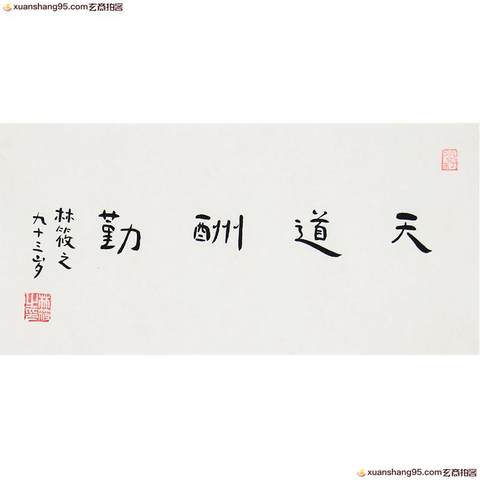 xuanshang95.com玄商拍客
天道酬勤
林筱之
九十三岁
xuanshang95.com玄商拍客